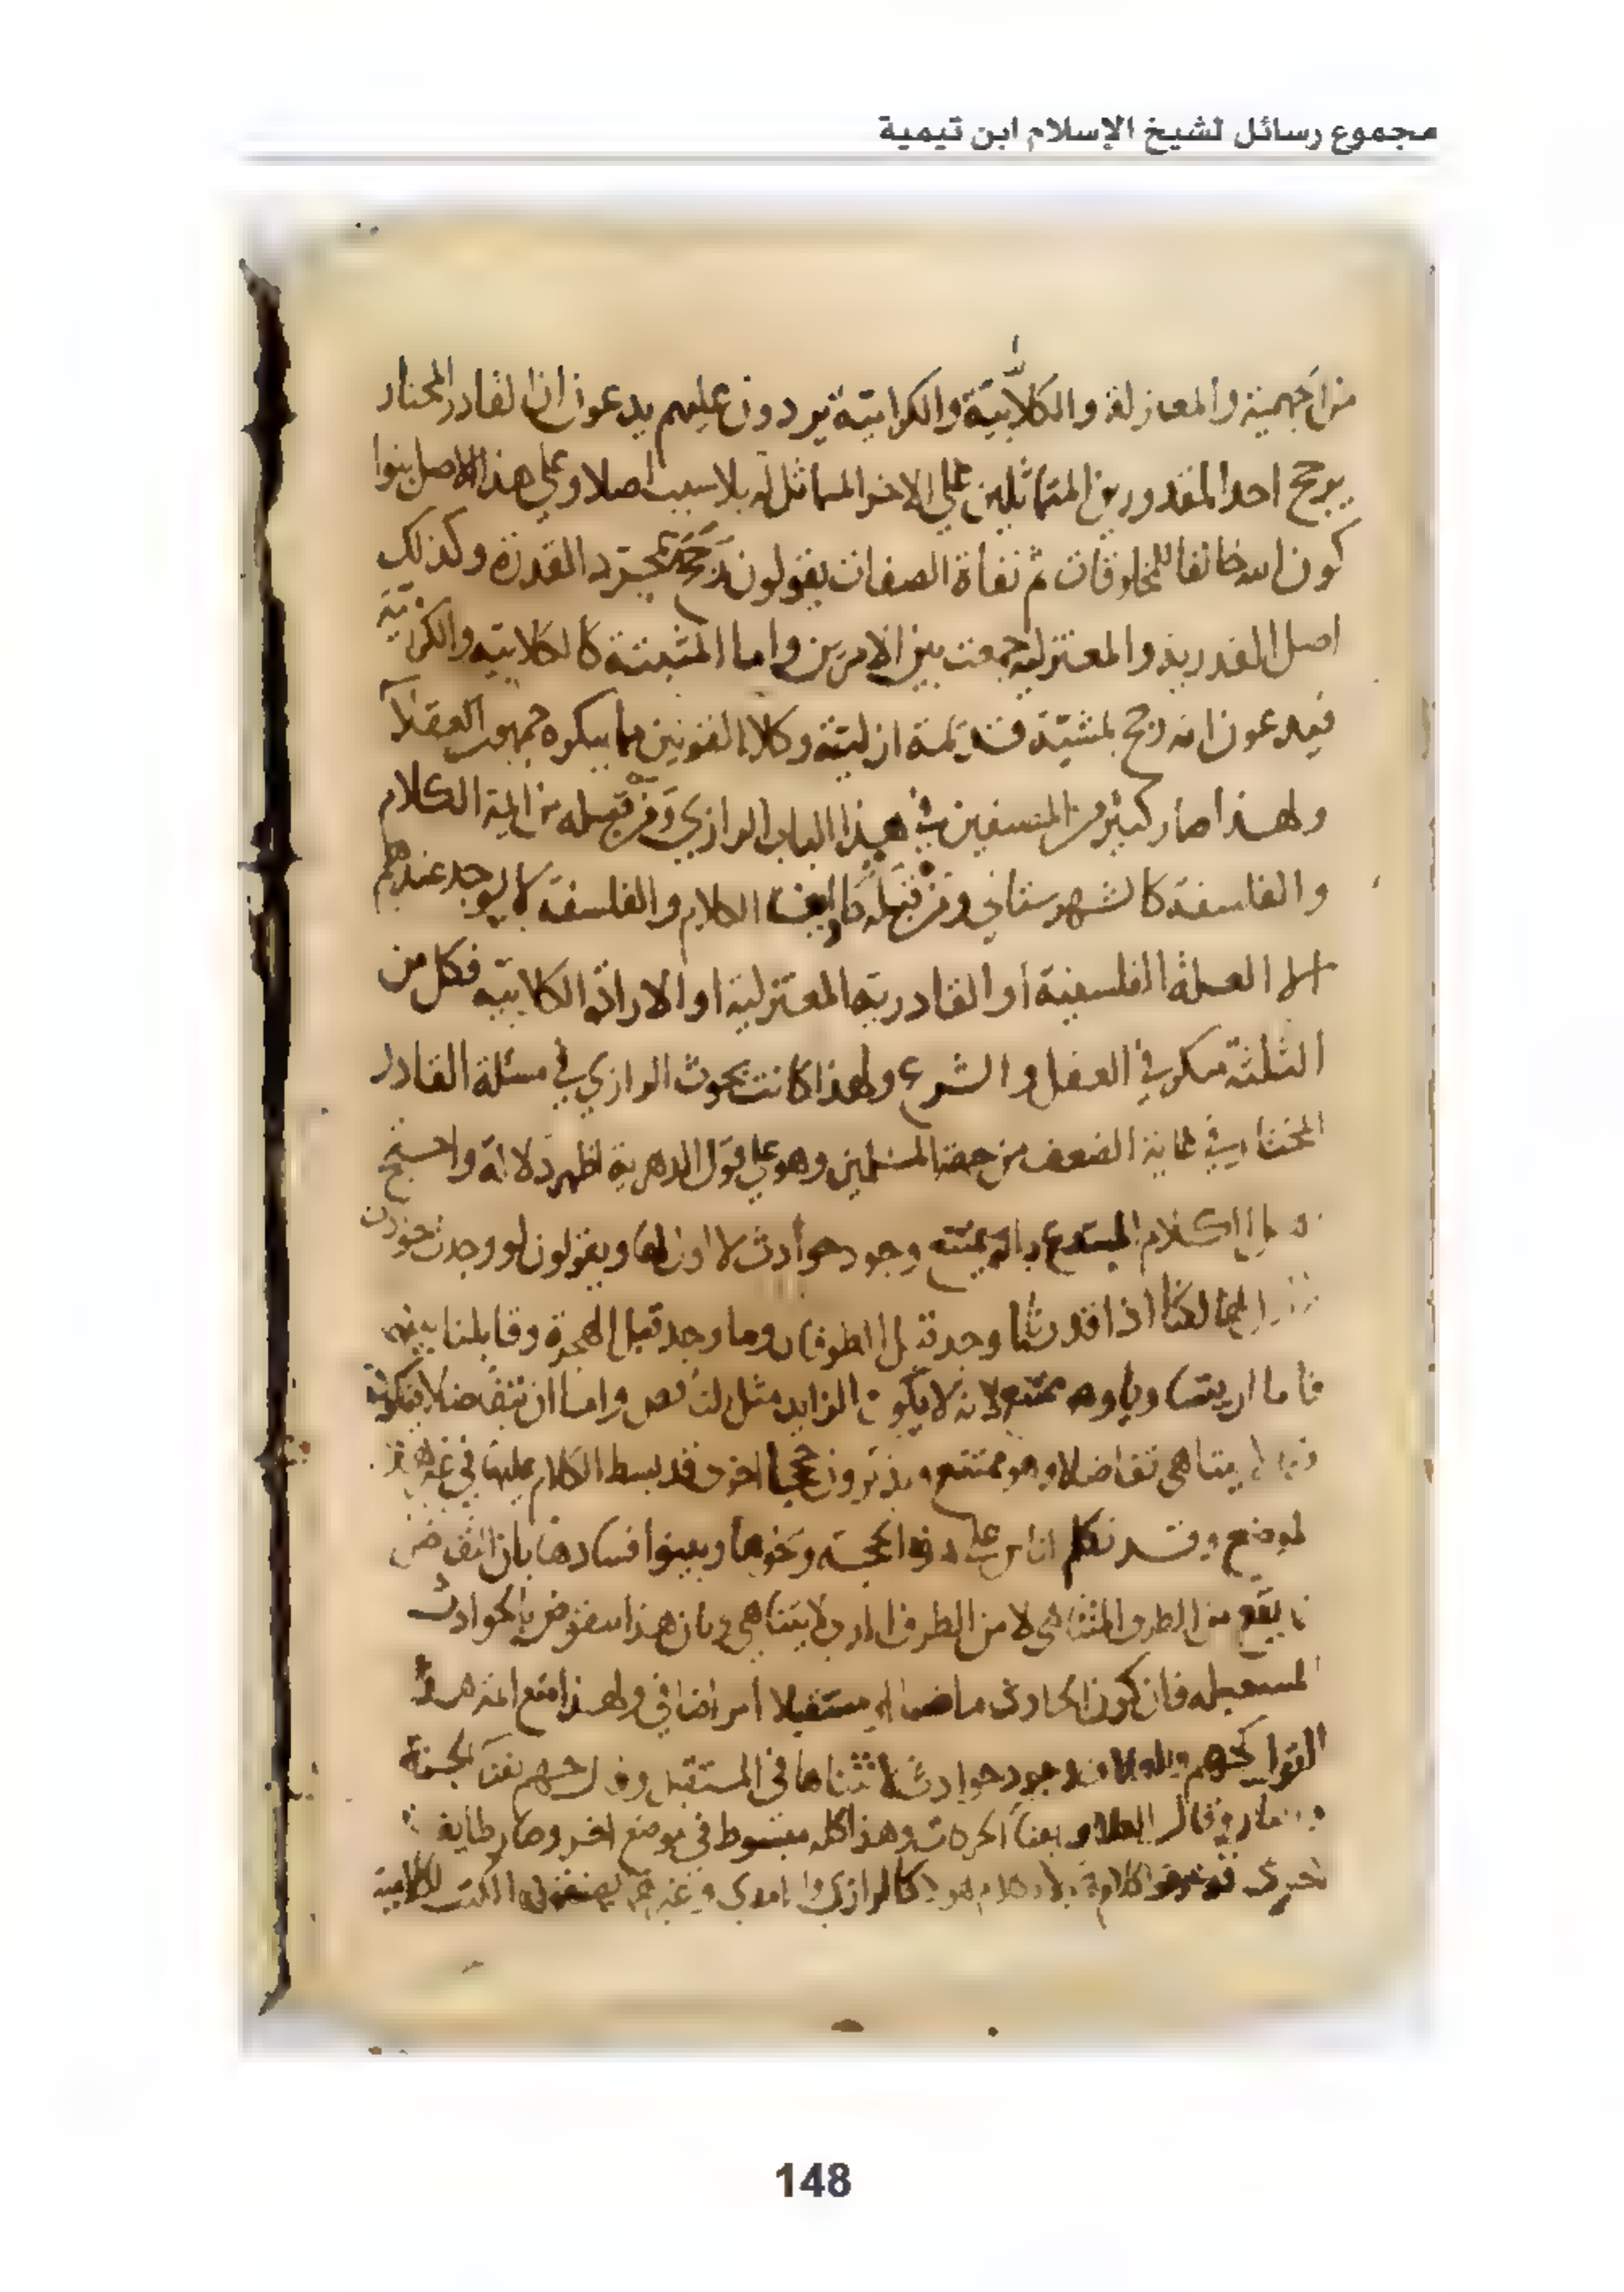 مجموع رسائل لشيخ الإسلام ابن تيمية
من الجهمية والمعتزلة والكلابية والكرامية يردون عليهم يدعون ان القادر المختار
يرجح احد المقدورين المتماثلين علي الاخر المماثل له بلا سبب اصلا وعلي هذا الاصل بنوا
كون الله خالقا للمخلوقات ثم نفاة الصفات يقولون بمجرد القدرة وكذلك
اصل القدرية والمعتزلة جمعت بين الامرين واما المثبتة كالكلابية والكرامية
فيدعون انه رجح بمشيئة قديمة ازلية وكلا القولين مما ينكره جمهور العقلا
ولهذا صار كثير من المصنفين في هذا الباب الرازي ومن قبله من ايمة الكلام
والفلسفة كالشهرستاني ومن قبله الكلام والفلسفة لا يوجد عندهم
الا العلة الفلسفية او القادرية المعتزلية او الارادة الكلابية فكل من
الثلثة منكر في العقل والشرع ولهذا كانت بحوث الرازي في مسئلة القادر
المختار في غاية الضعف من جهة المسلمين وهو علي قول الدهرية اظهر دلالة واحتج
الكلام المبتدع بانه يمتنع وجود حوادث لا اول لها ويقولون لو وجدت حوادث
لها لكنا اذا قدرنا ما وجد قبل الطوفان وما وجد قبل الهجرة وقابلنا بينهم
فاما ان يتساويا وهو ممتنع لانه لا يكون الزايد مثل الناقص واما ان يتفاضلا فيكون
فيما لا يتناهى تفاضلا وهو ممتنع ويذكرون حججا اخرى قد بسط الكلام عليها في غير هذا
الموضع وقد تكلم الناس علي هذه الحجة ونحوها وبينوا فسادها بان التفاضل
يقع من الطرف المتناهي لا من الطرف الذي لا يتناهي وبان هذا منقوض بالحوادث
المستقبله فان كون الحادث ماضيا او مستقبلا امر اضافي ولهذا ايمة هذا
القول كجهم وجود حوادث لا تتناها في المستقبل وقال جهم بفنا الجنة
والنار وقال العلاف بفنا الحركات وهذا كله مبسوط في موضع اخر وصار طايفة
اخرى كالرازي والامدي وغيرهما يصنفون الكتب الكلامية
148